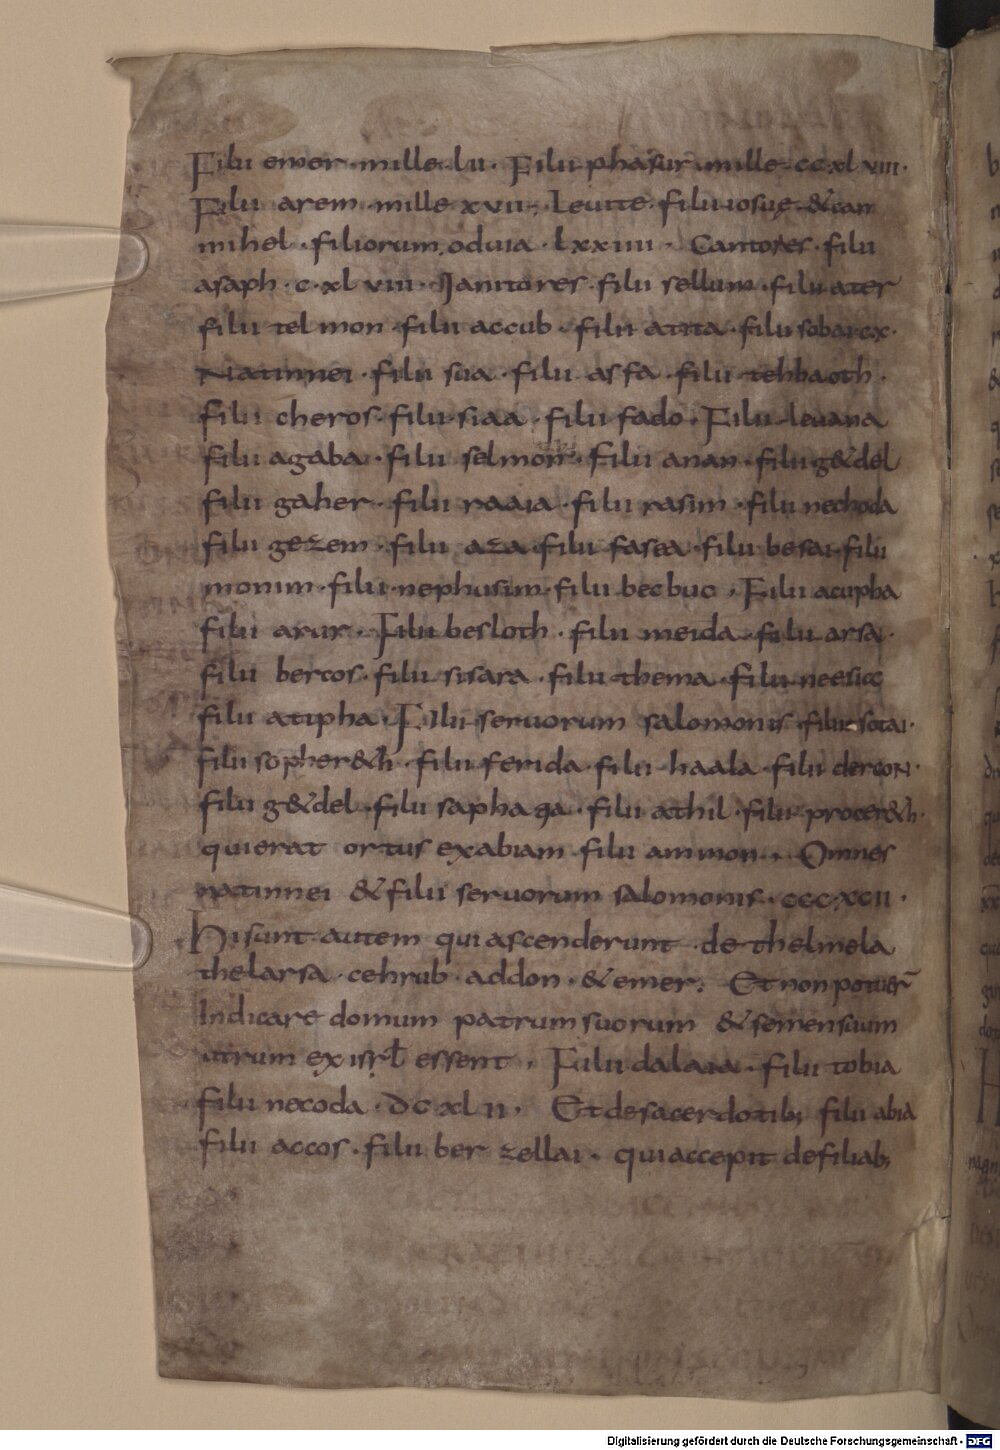 Filii emer · mille · lii · Filii phasur · mille · ccxl viii ·
Filii arem · mille xvii · Leuite · filii iosuę · & cam
mihel · filiorum oduia · lxxiiii · Cantores · filii
asaph · c · xl viii · Janitores · filii sellum · filii ater
filii tel mon · filii accub · filii atita · filii sobai cx ·
Natinnei · filii sua · filii asfa · filii tehbaoth ·
filii cheros · filii siaa · filii fado · Filii levana
filii agaba · filii selmon · filii anan · filii g&del
filii gaher · filii raaia · filii rasim · filii nechoda
filii gezem · filii aza · filii fasea · filii besai · filii
monim · filii nephusim · filii becbuc · Filii acupha
filii arur · Filii besloth · filii meida · filii arsa ·
filii bercos · filii sisara · filii thema · filii neesicc
filii atipha · Filii seruorum salomonis · filii sotai ·
filii sopher&h · filii ferida · filii haala · filii dercon ·
filii g&del · filii saphaga · filii athil · filii procer&h ·
qui erat ortus ex abiam filii ammon · Omnes
natinnei & filii seruorum salomonis · cccxcii ·
Hi sunt autem qui ascenderunt · de thelmela
thelarsa · cehrub · addon · & emer · Et non potuer̄
Indicare domum patrum suorum & semen suum
utrum ex isrl̄ essent · Fulii dalaia · filii tobia
filii necoda · dcxlii · Et de sacerdotib; filii abia
filii accos · filii ber zellai · qui accepit de filiab;
Digitalisierung gefördert durch die Deutsche Forschungsgemeinschaft - DFG